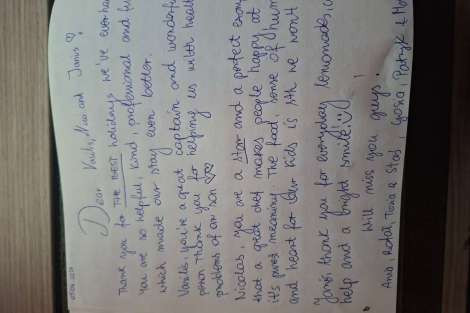 Dear Vasilis, Nico and Janis ♡!
Thank you for THE BEST holidays we've ever had
You are so helpful, kind, professional and fu
which made our stay even better.
Vasilis, you're a great captain and wonderful
person. Thank you for helping us with health
problems of our son ♡♡
Nicolas, you are a star and a perfect exam
that a great chef makes people happy at
it's purest meaning. The food, sense of hum
and heart for our kids is sth we won't
Janis, thank you for everyday lemonades, ic
help and a bright smile! :)
Will miss you guys!
Ania, Rafał, Tona & Staś, Gosia, Patryk &